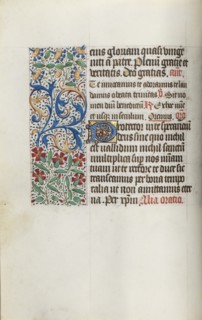 eius gloriam quasi unige
niti a patre. Plenū gratie et
veritatis. Deo gratias.
Te invocamus te adoramus te lau
damus o beata trinitas. Sit no
men dnī benedictū. Ex hoc nunc
et usqȝ in seculum. Oremus.
Protector in te sperantiū
deus sine quo nichil
est validum nichil sanctū
multiplica sup nos miām
tuam ut te rectore te duce sic
transeamus per bona tempo
ralia ut non amittamus eter
na. Per xpm̄ Alia oratio.